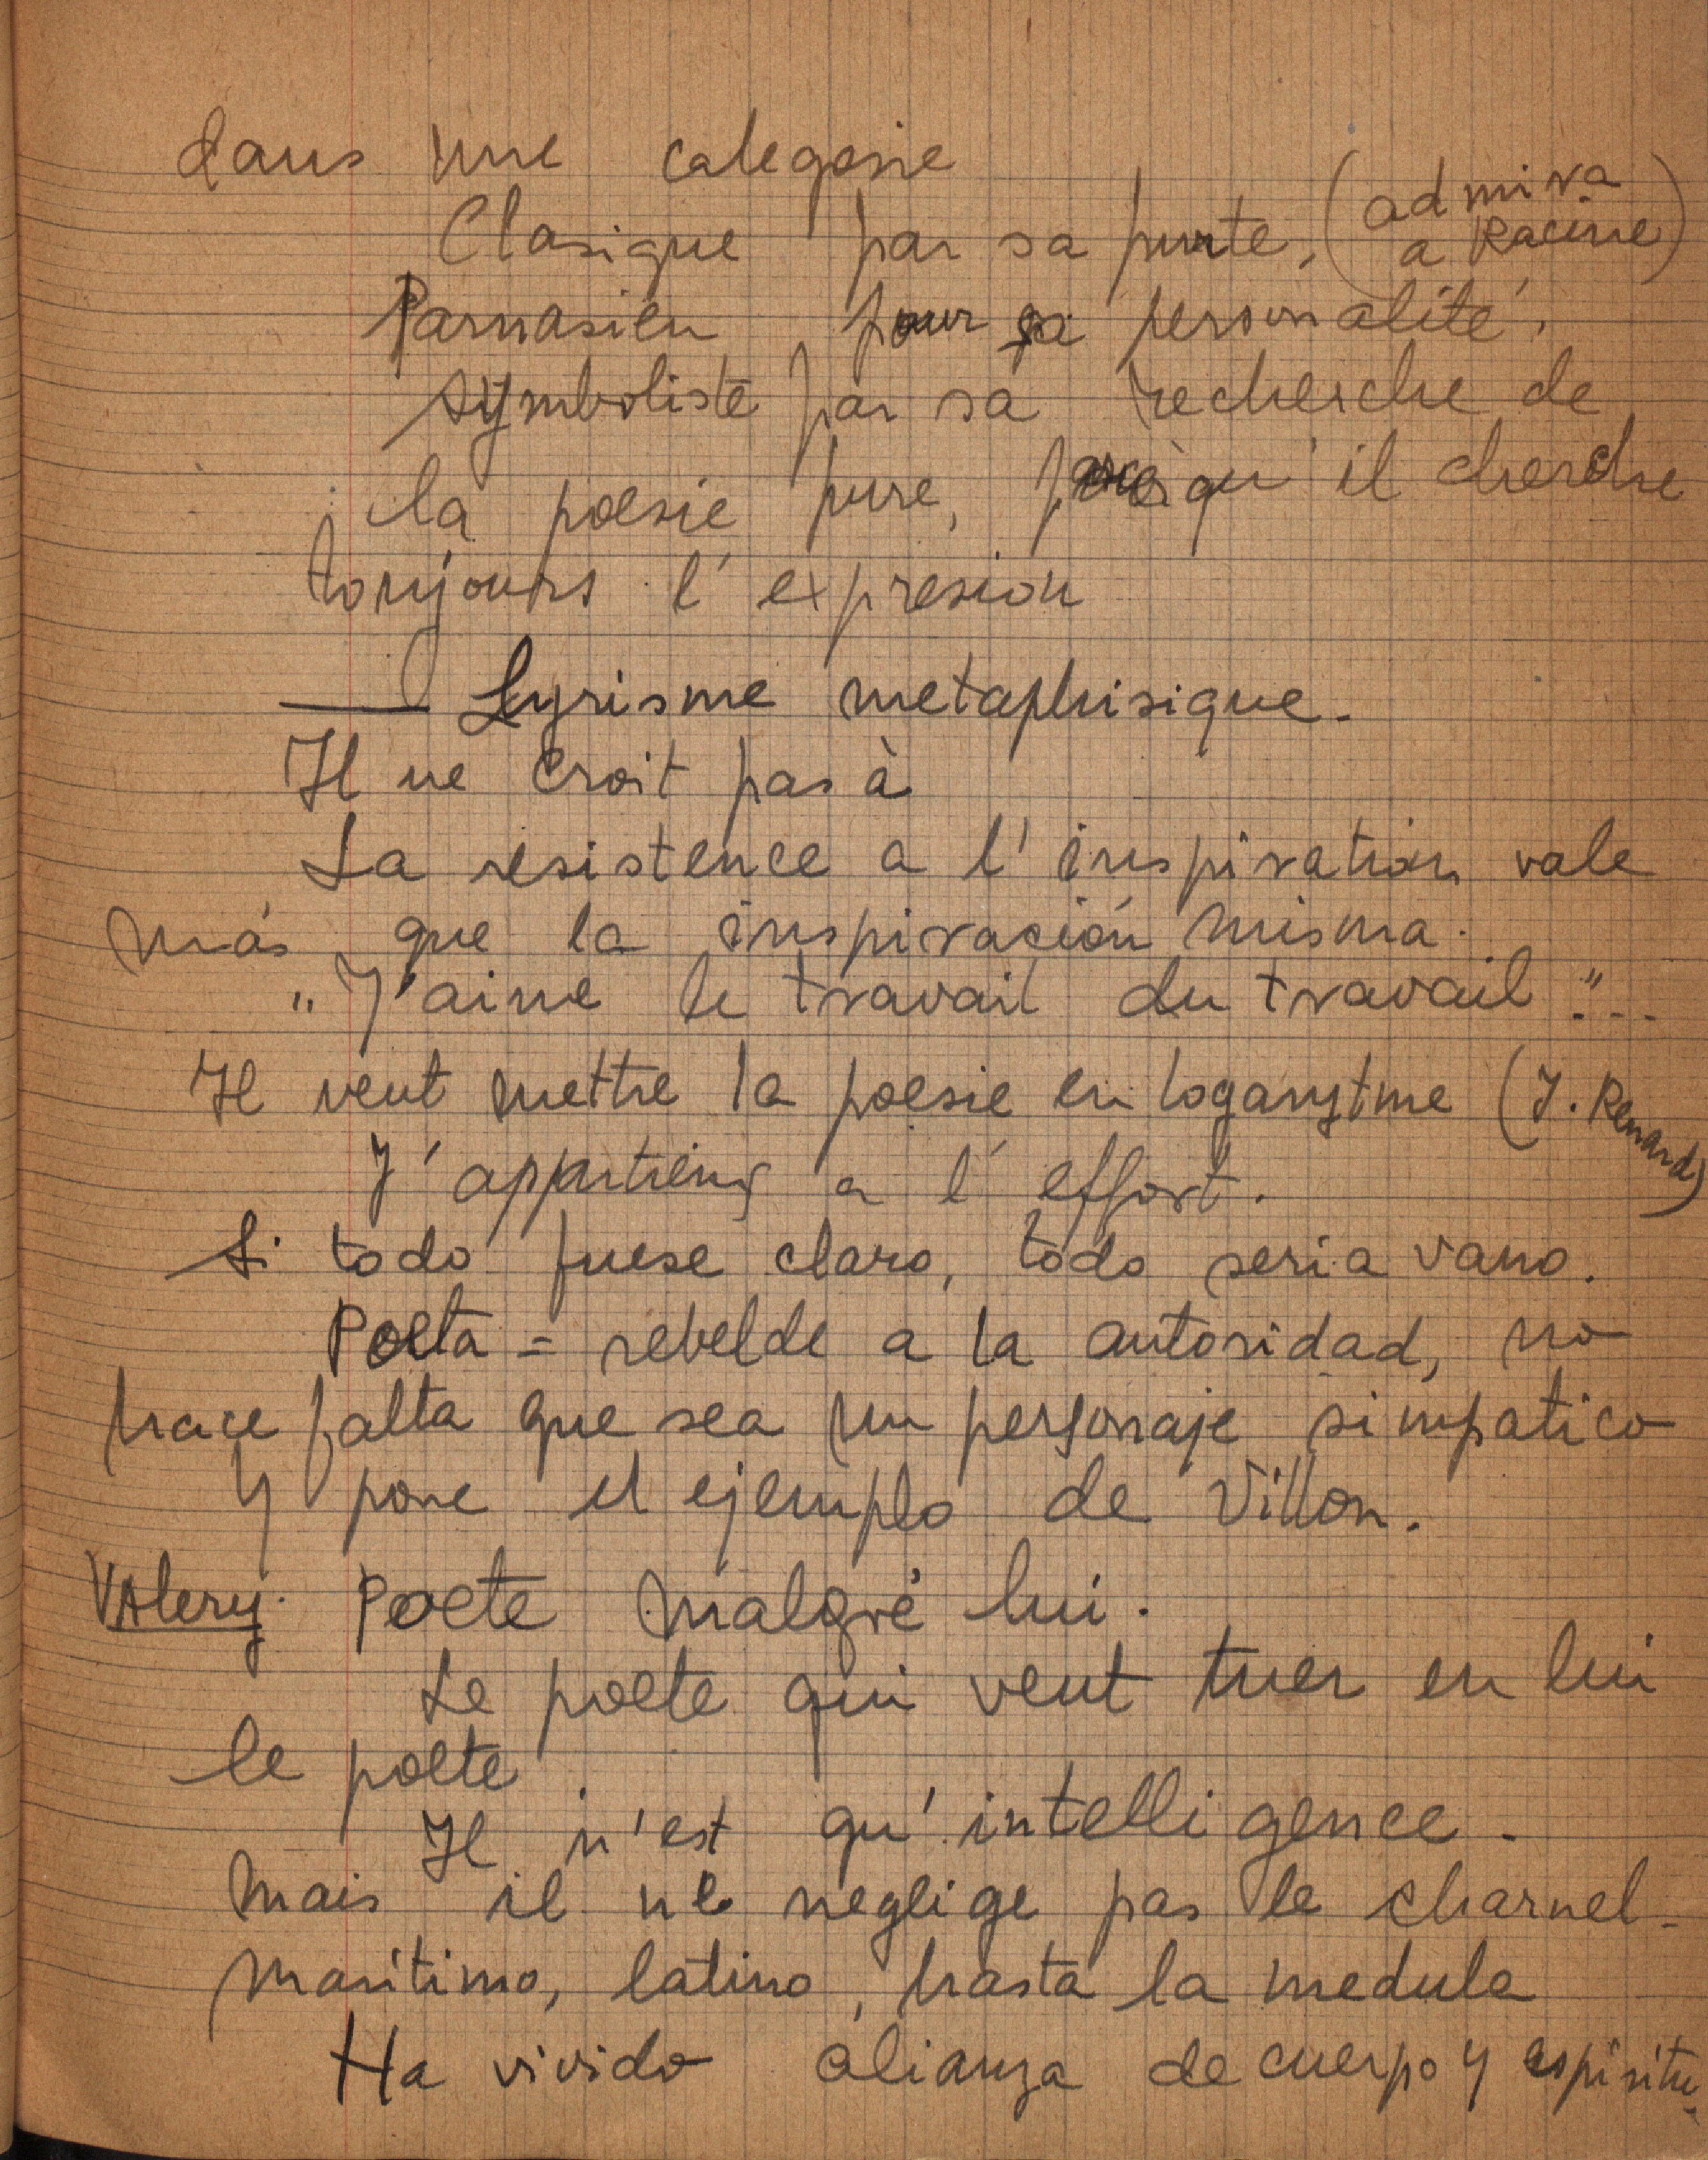 dans une categorie
Clasique par sa purte, (admira
a Racine)
Parnasien pour sa personalité,
symboliste par sa recherche de
la poesie pure, parce qu'il cherche
toujours l'expresion
— Lyrisme metaphisique.
Il ne croit pas à
La resistence a l'inspiration vale
más que la inspiración misma.
"J'aime le travail du travail"...
Il veut mettre la poesie en logarytme (J. Renard)
J'appartiens a l'effort.
Si todo fuese claro, todo seria vano.
Poeta = rebelde a la autoridad, no
hace falta que sea un personaje simpatico
y pone el ejemplo de Villon.
VAlery. Poete malgré lui.
Le poete qui veut tuer en lui
le poete.
Il n'est qu'intelligence.
Mais il ne neglige pas le charnel-
maritimo, latino, hasta la medula
Ha vivido alianza de cuerpo y espiritu.